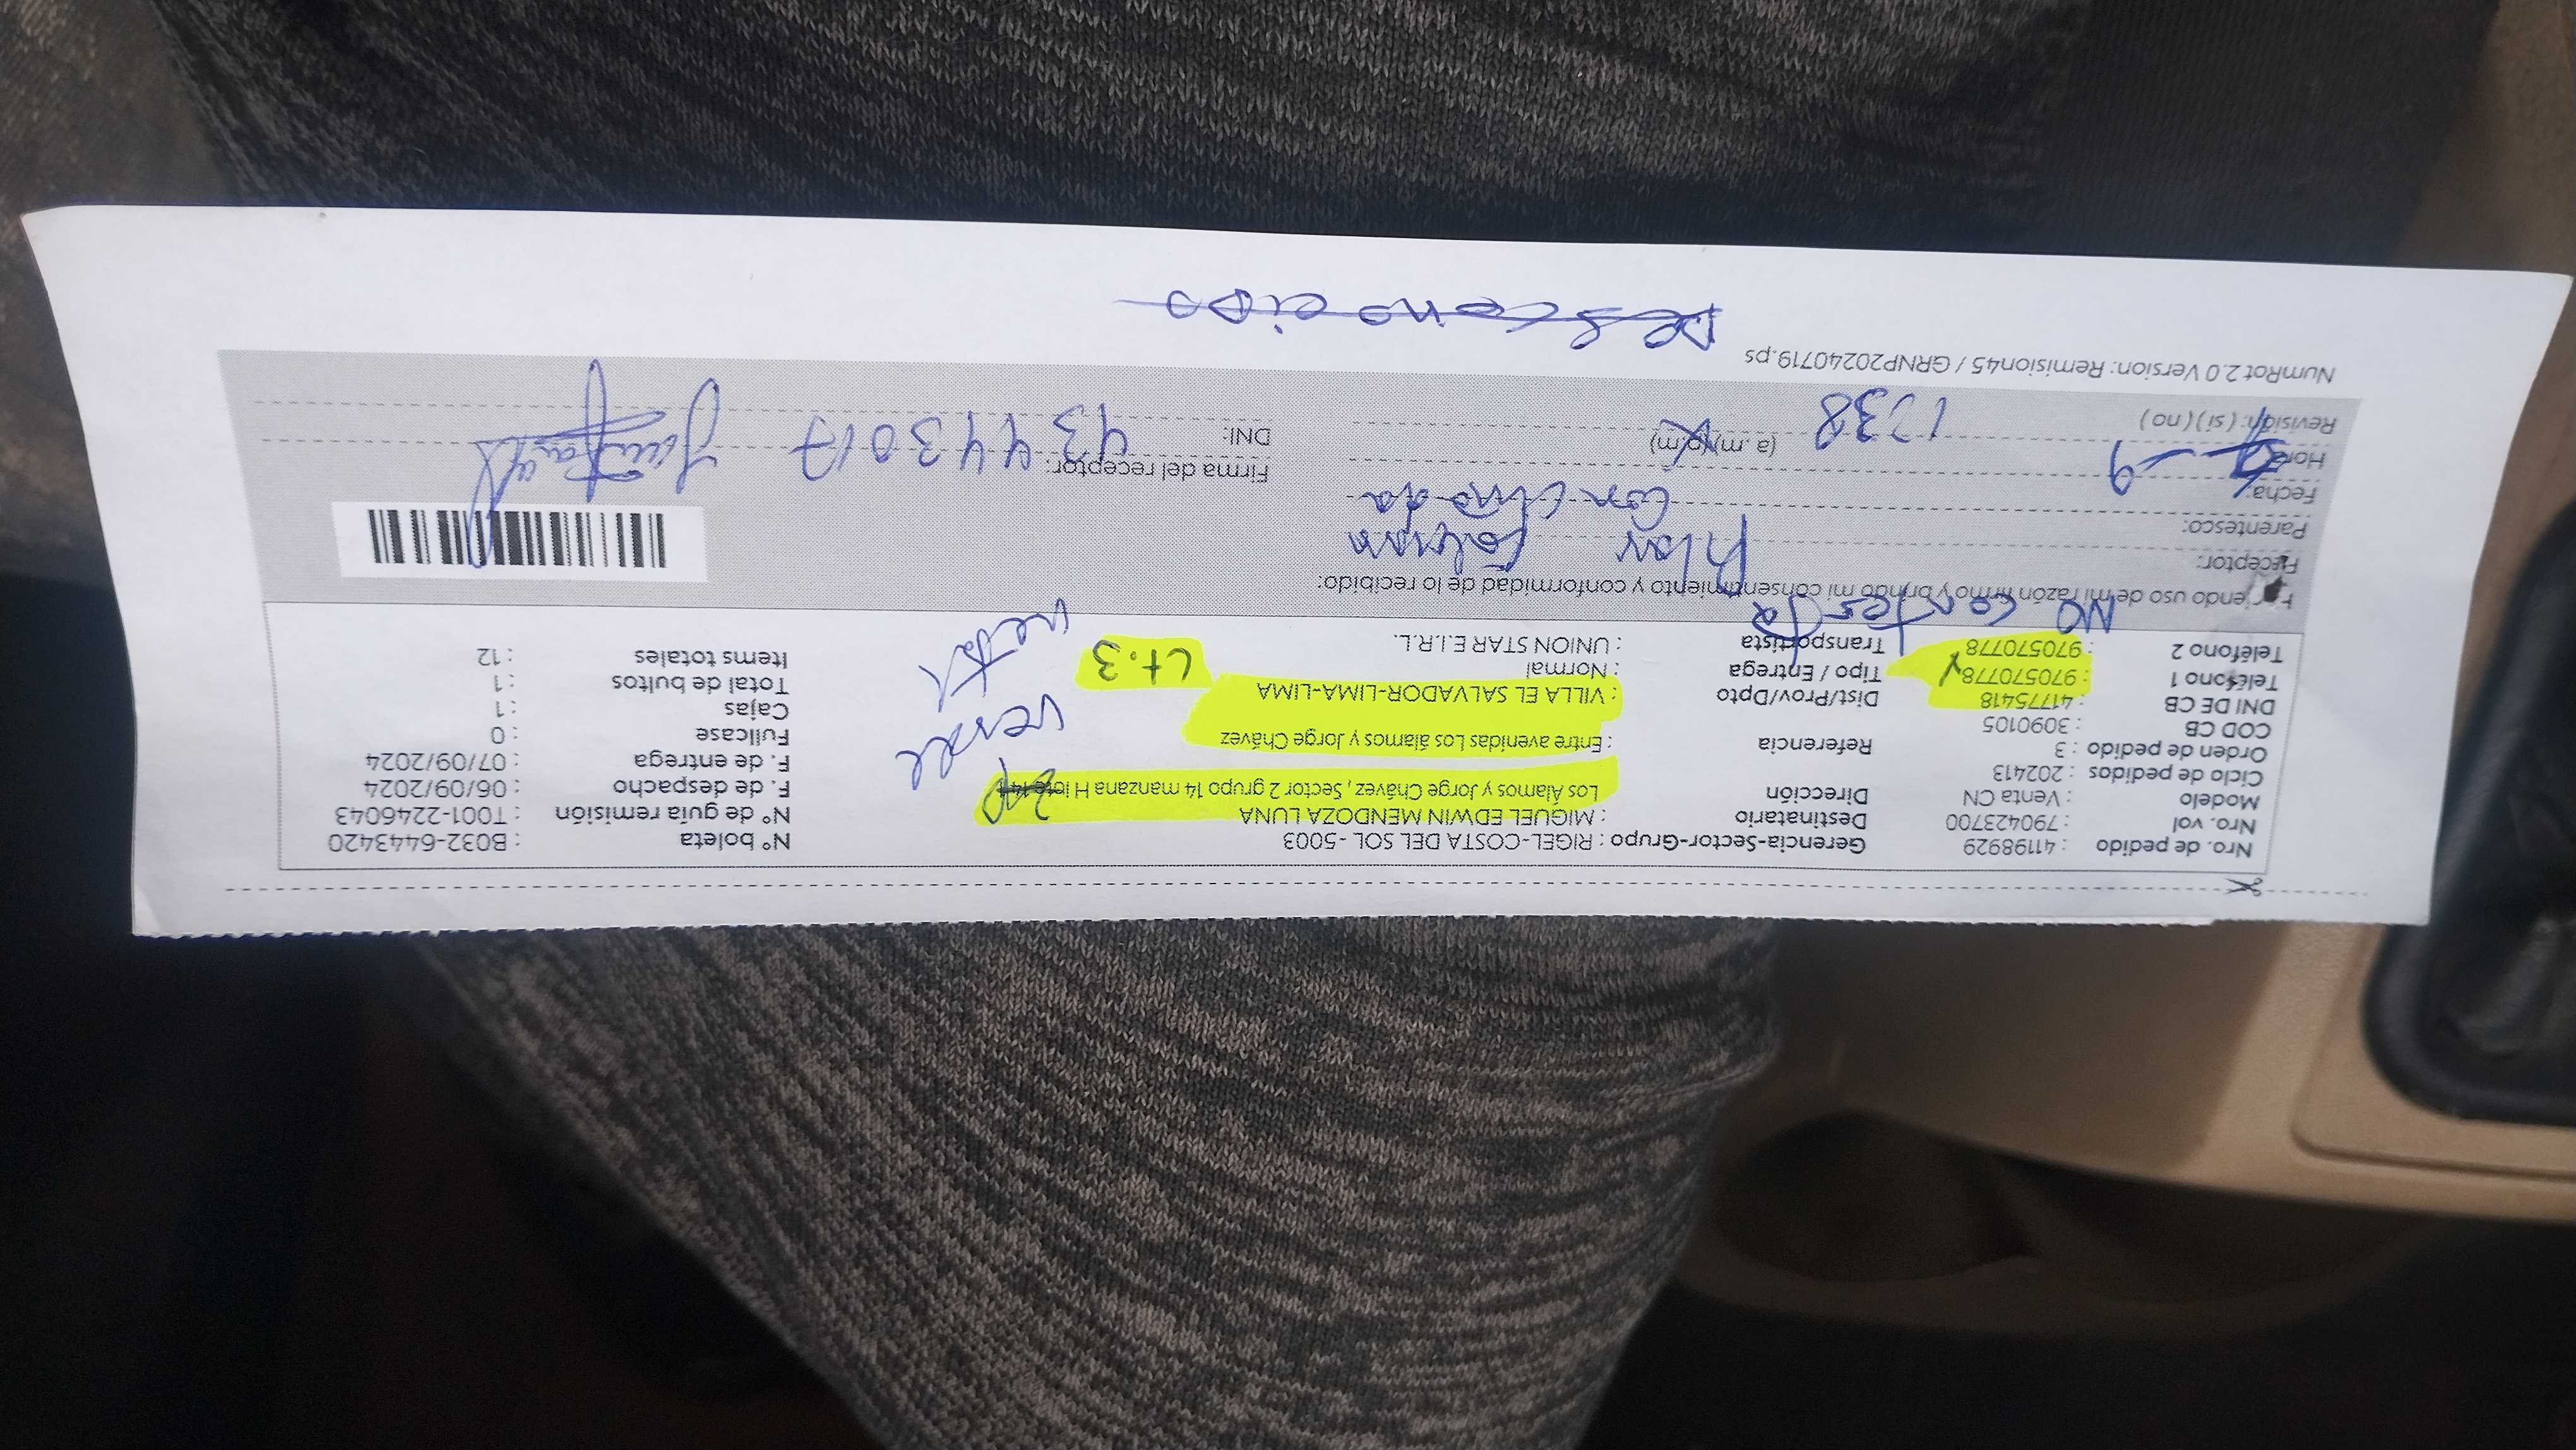 Nro. de pedido : 41198929 Gerencia-Sector-Grupo : RIGEL-COSTA DEL SOL -5003 N° boleta : B032-6443420
Nro. vol : 790423700 Destinatario : MIGUEL EDWIN MENDOZA LUNA N° de guía remisión : T001-2246043
Modelo : Venta CN Dirección Los Álamos y Jorge Chávez, Sector 2 grupo 14 manzana H lote 14 F. de despacho : 06/09/2024
Ciclo de pedidos : 202413 F. de entrega : 07/09/2024
Orden de pedido : 3 Referencia : Entre avenidas Los álamos y Jorge Chávez Fullcase : 0
COD CB : 3090105 Cajas : 1
DNI DE CB : 41775418 Dist/Prov/Dpto : VILLA EL SALVADOR-LIMA-LIMA Total de bultos : 1
Teléfono 1 : 970570778 Tipo / Entrega : Normal Lt. 3 Items totales : 12
Teléfono 2 : 970570778 Transportista : UNION STAR E.I.R.L.
verde
NO contesta
Haciendo uso de mi razón firmo y brindo mi consentimiento y conformidad de lo recibido:
Receptor: Pilar Fabian
Parentesco: Con cuñada
Fecha: 9
Hora: 1238 (a.m)(p.m)
Revisión: (si) (no)
Firma del receptor:
DNI: 43443017
NumRot 2.0 Version: Remision45 / GRNP20240719.ps
Desconocido